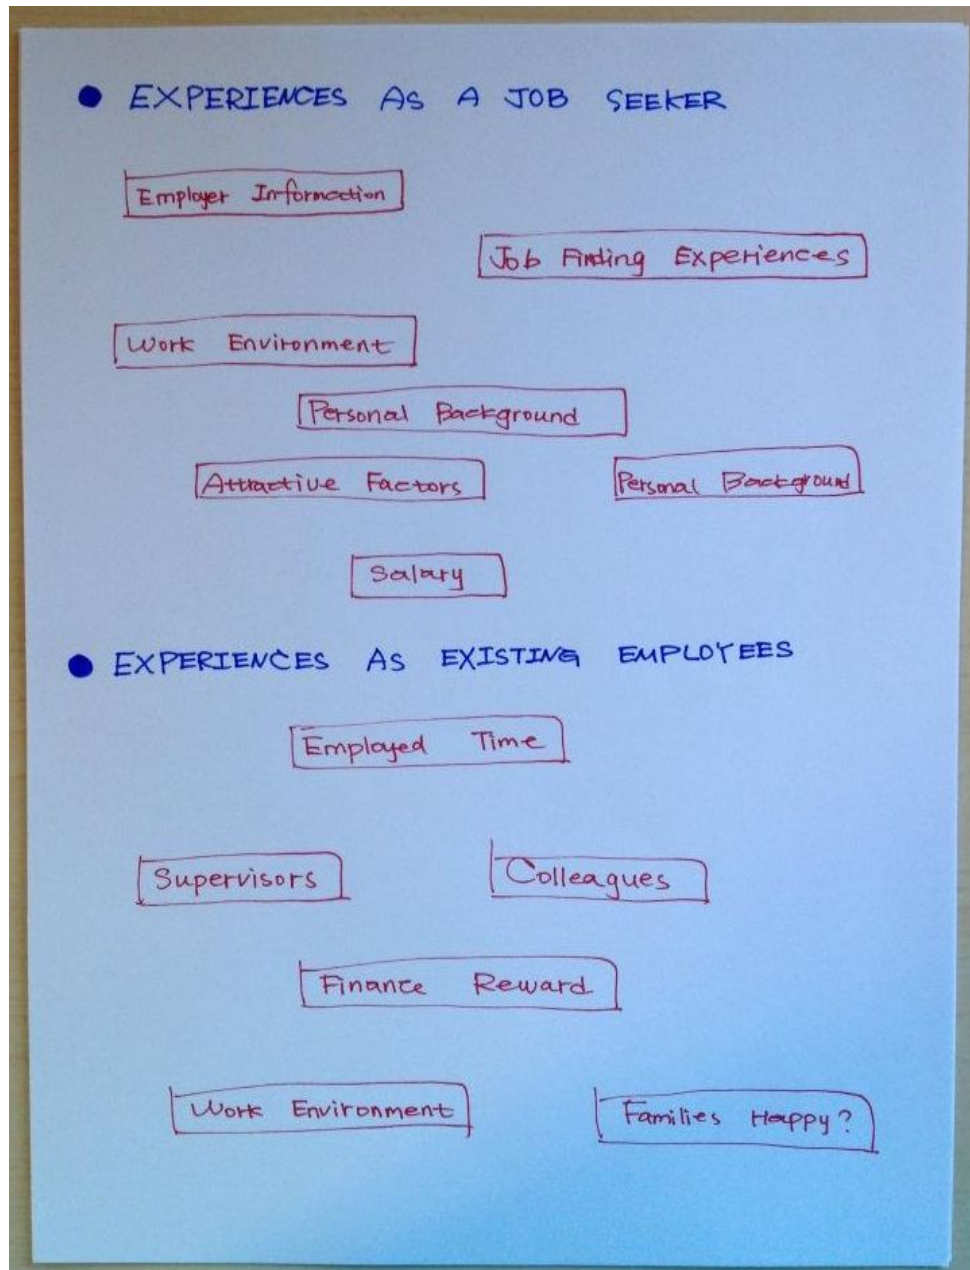 ● EXPERIENCES AS A JOB SEEKER
Employer Information
Job Finding Experiences
Work Environment
Personal Background
Attractive Factors
Personal Background
Salary
● EXPERIENCES AS EXISTING EMPLOYEES
Employed Time
Supervisors
Colleagues
Finance Reward
Work Environment
Families Happy?